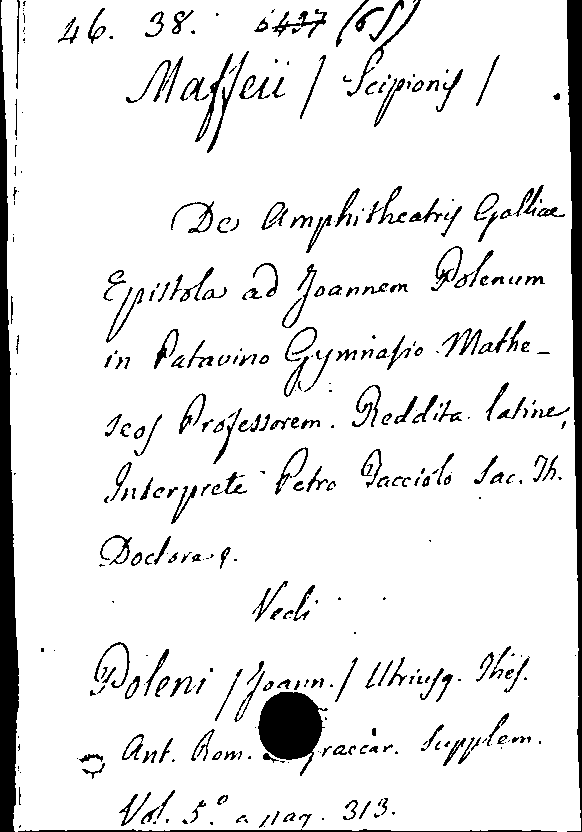 46. 38. 5437 (65)
Maffeii / Scipionis /
De Amphitheatris Galliae
Epistola ad Joannem Polenum
in Patavino Gymnasio Mathe-
seos Professorem. Reddita latine,
Interprete Petro Facciolo Sac. Th.
Doctore.
Vedi
Poleni / Joann. / Utriusq. Thes.
Ant. Rom. graecar. Supplem.
Vol. 5.° a pag. 313.